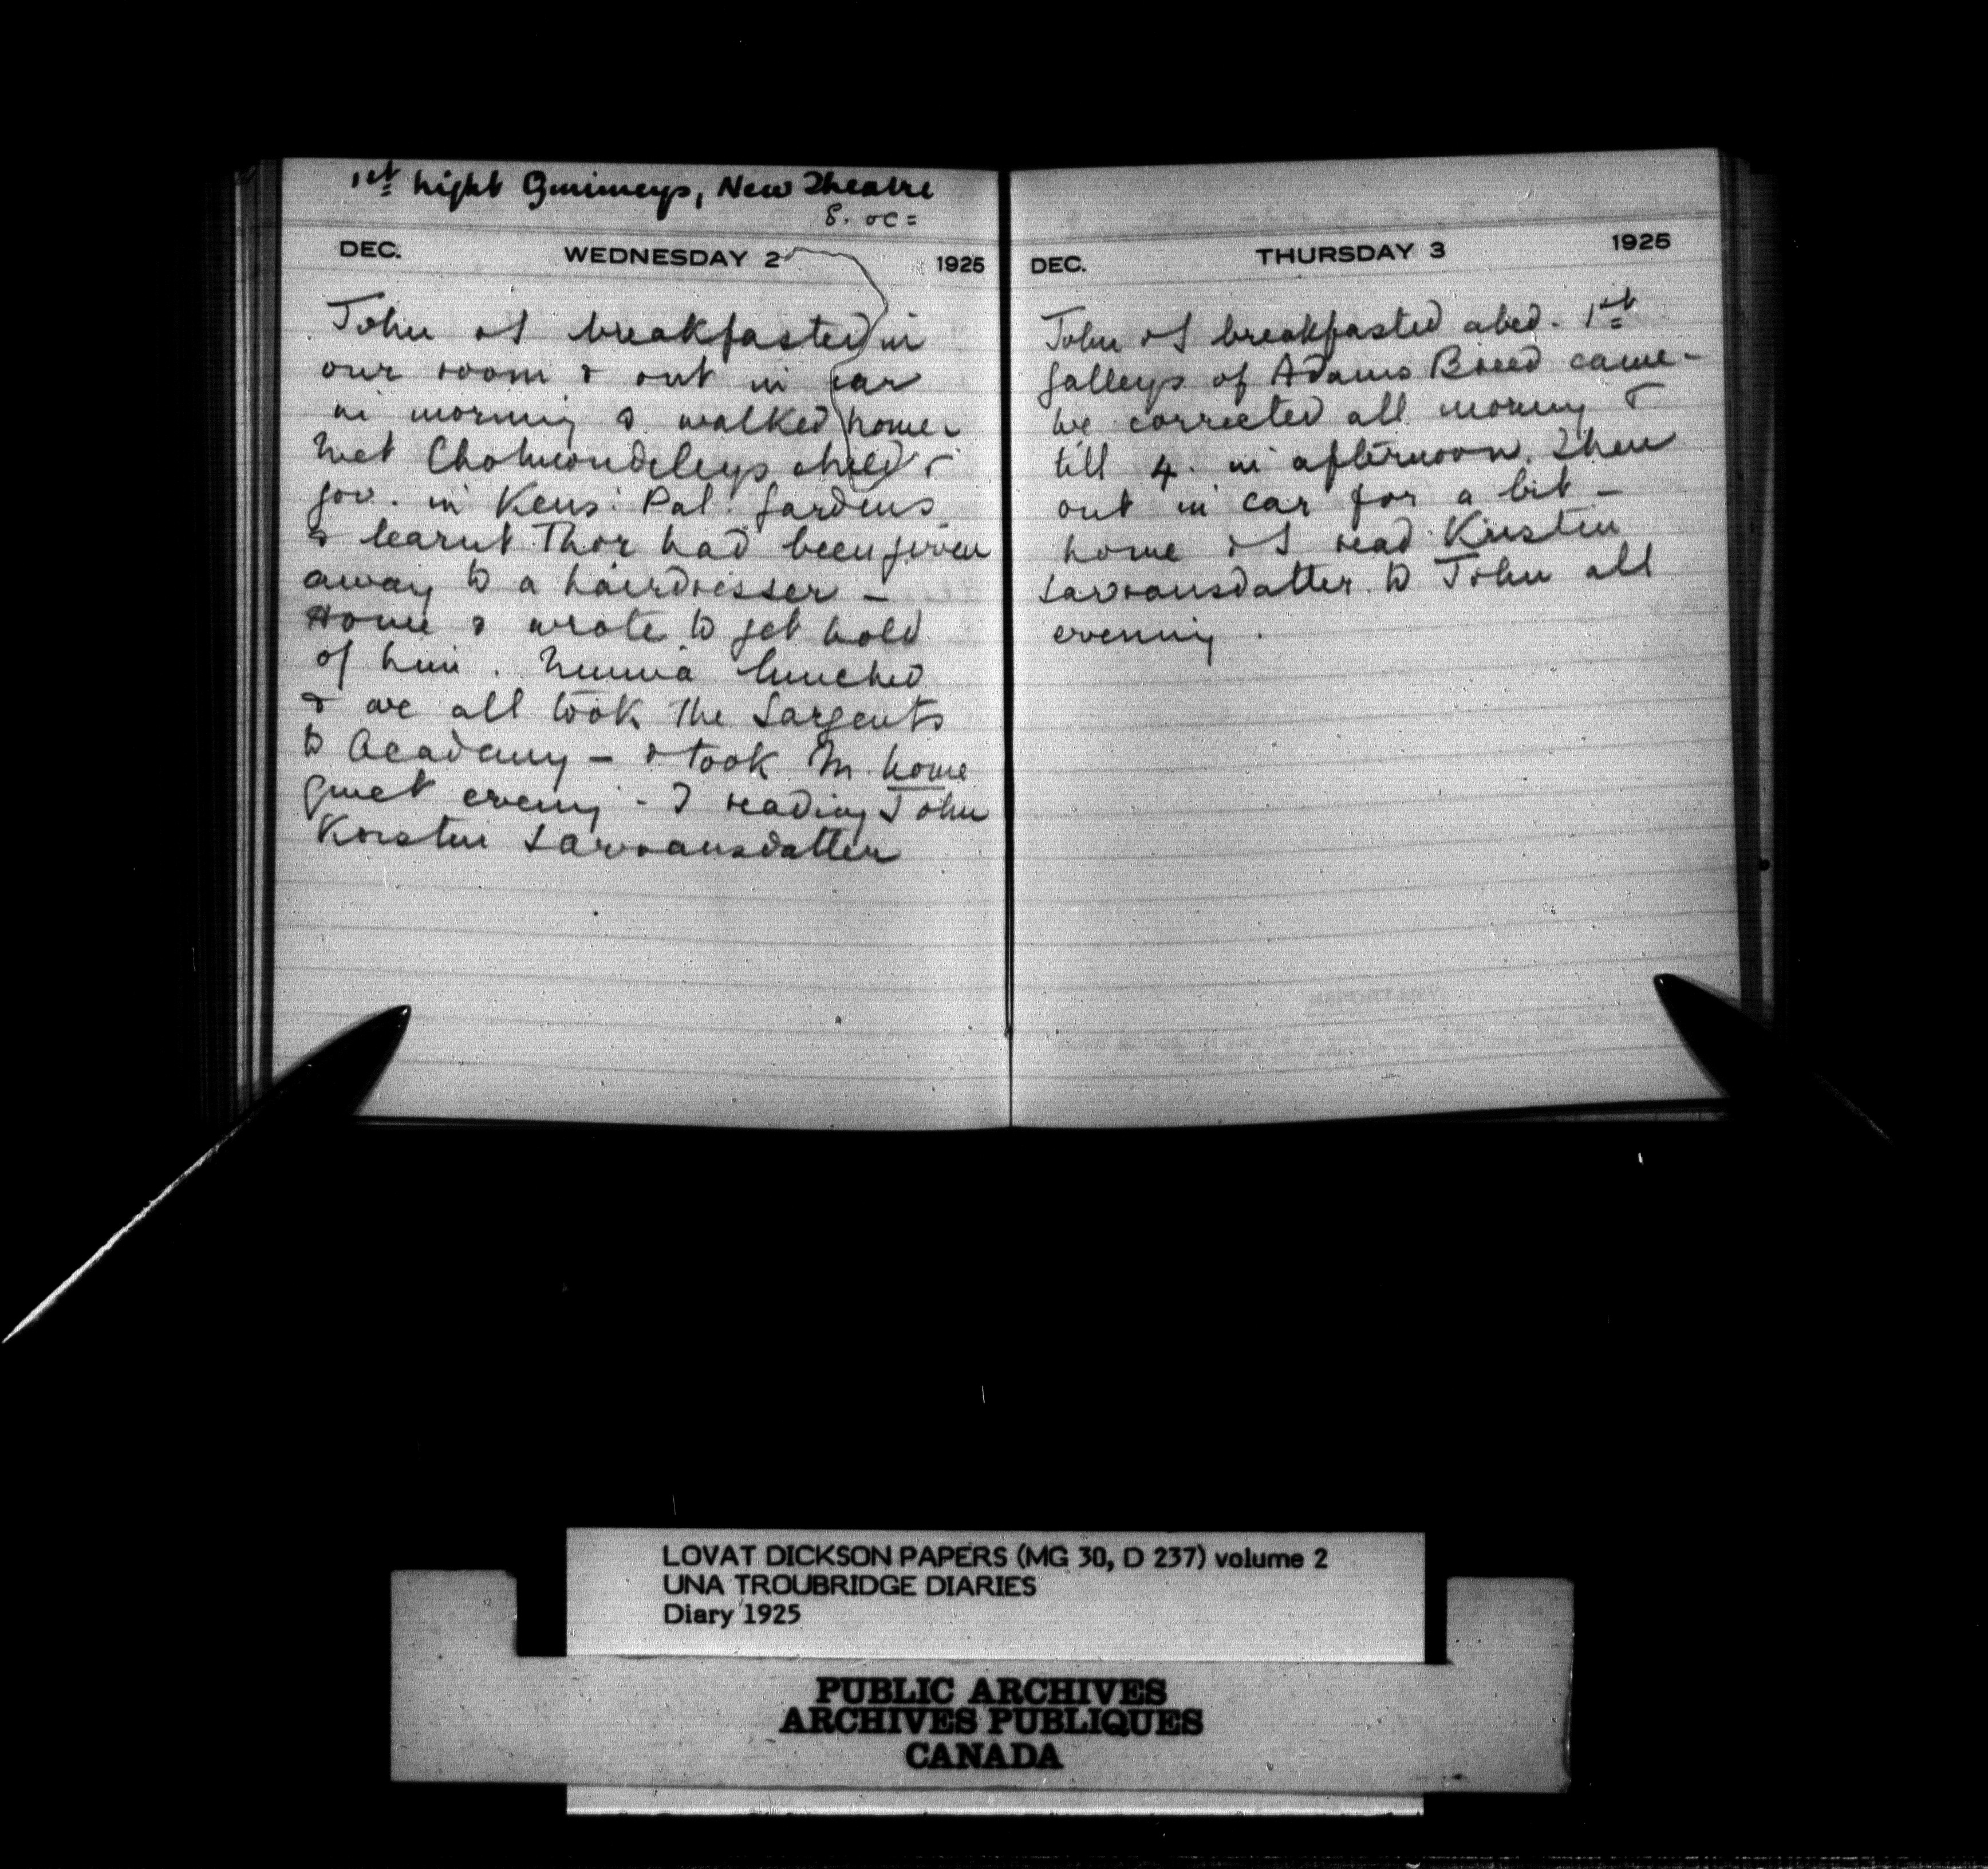 1st night Gruimeys, New Theatre
8. oc =
DEC. WEDNESDAY 2 1925
John & I breakfasted in
our room & out in car
in morning & walked home
met Cholmondeleys child &
gov. in Kens. Pal. Gardens
& learnt Thor had been given
away to a hairdresser —
Home & wrote to get hold
of him. lunched
& we all took the Sargents
to Academy — & took M. home
Quiet evening - I reading John
Kristin Lavransdatter
DEC. THURSDAY 3 1925
John & I breakfasted abed. 1st
galleys of Adams Breed came -
we corrected all morning &
till 4. in afternoon. Then
out in car for a bit —
home & I read Kristin
Lavransdatter to John all
evening.
LOVAT DICKSON PAPERS (MG 30, D 237) volume 2
UNA TROUBRIDGE DIARIES
Diary 1925
PUBLIC ARCHIVES
ARCHIVES PUBLIQUES
CANADA